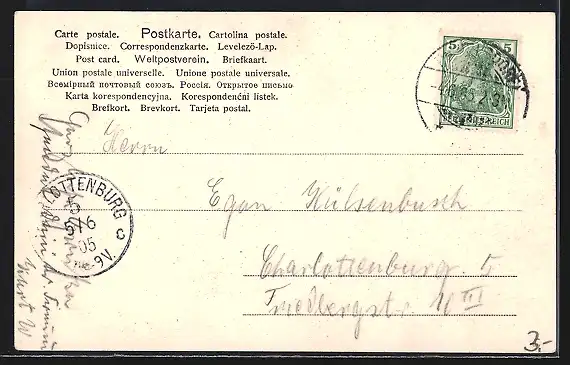 Carte postale. Postkarte. Cartolina postale.
Dopisnice. Correspondenzkarte. Levelező-Lap.
Post card. Weltpostverein. Briefkaart.
Union postale universelle. Unione postale universale.
Всемірный почтовый союзъ. Россія. Открытое письмо.
Karta korespondencyjna. Korespondenční listek.
Brefkort. Brevkort. Tarjeta postal.
5 5
REICH
Herrn
Egon Külsenbusch
Charlottenburg 5
Friedbergstr. 16 III
TTENBURG
5/6
05
-9V.
c
Kurt W
3.-